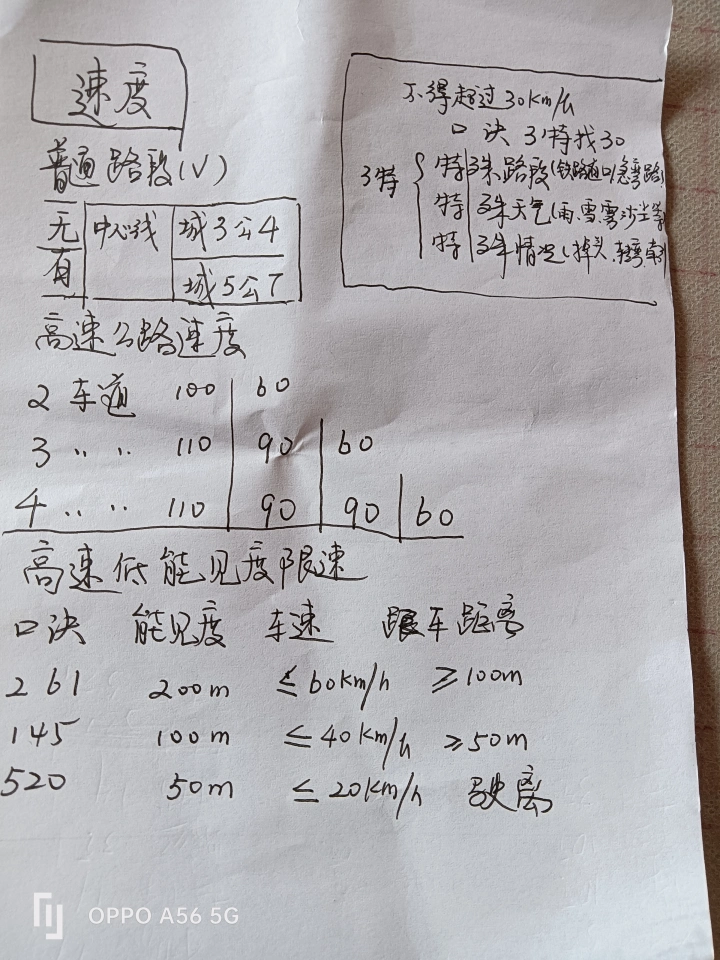 速度
普通路段(V)
无 中心线 城3公4
有 城5公7
不得超过30km/h
口诀 3特找30
3特 特殊路段(铁路道口/急弯路
特殊天气(雨、雪、雾沙尘等
特殊情况(掉头、转弯
高速公路速度
2 车道 100 60
3 〃 〃 110 90 60
4 〃 〃 110 90 90 60
高速低能见度限速
口诀 能见度 车速 跟车距离
261 200m ≤60km/h ≥100m
145 100m ≤40km/h ≥50m
520 50m ≤20km/h 驶离
OPPO A56 5G